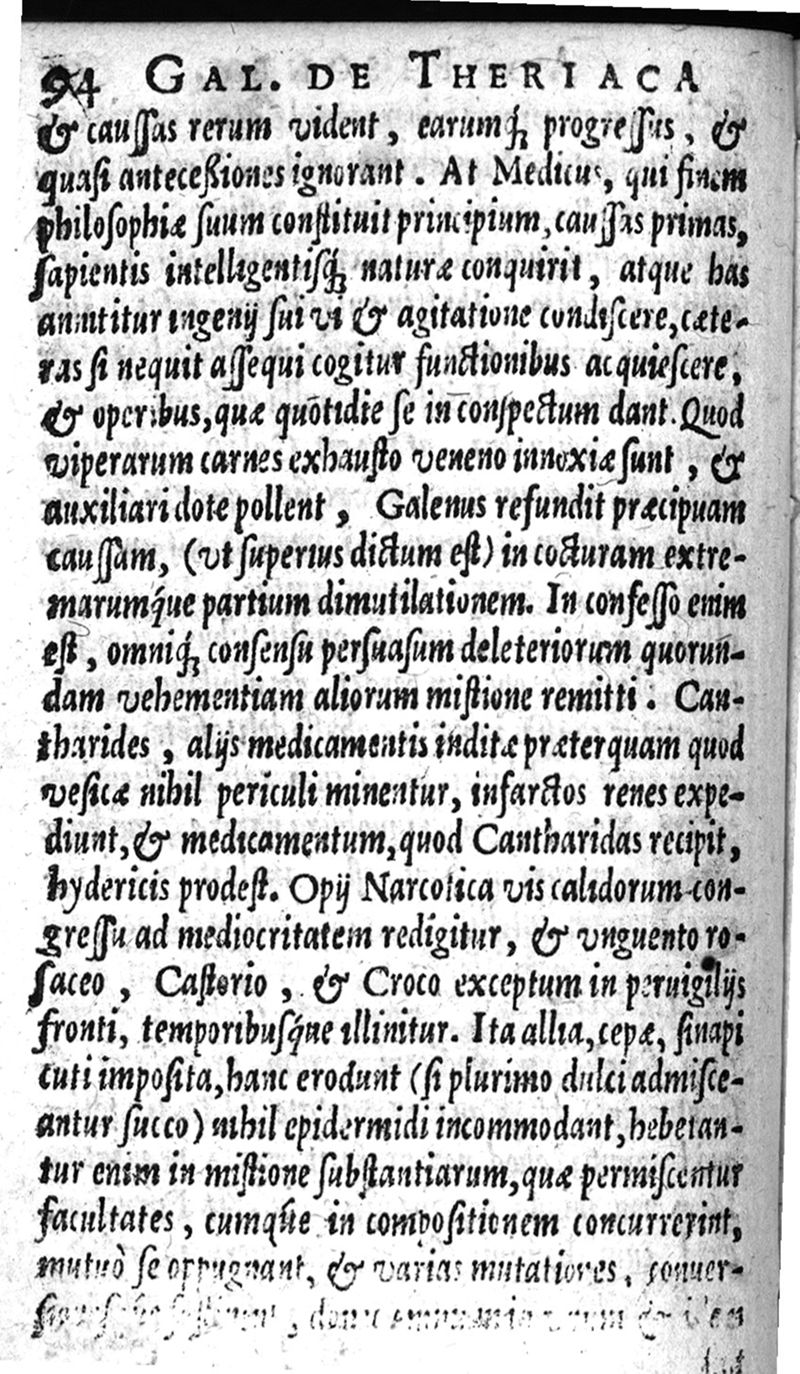 94 GAL. DE THERIACA
& cauſſas rerum vident, earumq́; progreſſus, &
quaſi anteceßiones ignorant. At Medicus, qui finem
philoſophiæ ſuum conſtituit principium, cauſſas primas,
ſapientis intelligentiſq́; naturæ conquirit, atque has
annititur ingenij ſui vi & agitatione condiſcere, cæte-
ras ſi nequit aſſequi cogitur functionibus acquieſcere,
& operibus, quæ quōtidie ſe in conſpectum dant. Quod
viperarum carnes exhauſto veneno innoxiæ ſunt, &
auxiliari dote pollent, Galenus refundit præcipuam
cauſſam, (vt ſuperius dictum eſt) in cocturam extre-
marumq́ue partium dimutilationem. In confeſſo enim
eſt, omniq́; conſenſu perſuaſum deleteriorum quorun-
dam vehementiam aliorum miſtione remitti. Can-
tharides, alijs medicamentis inditæ præterquam quod
veſicæ nihil periculi minentur, infarctos renes expe-
diunt, & medicamentum, quod Cantharidas recipit,
hydericis prodeſt. Opij Narcotica vis calidorum con-
greſſu ad mediocritatem redigitur, & vnguento ro-
ſaceo, Caſtorio, & Croco exceptum in peruigilijs
fronti, temporibuſq́ue illinitur. Ita allia, cepæ, ſinapi
cuti impoſita, hanc erodunt (ſi plurimo dulci admiſce-
antur ſucco) nihil epidermidi incommodant, hebetan-
tur enim in miſtione ſubſtantiarum, quæ permiſcentur
facultates, cumq́ue in compoſitionem concurrerint,
mutuò ſe oppugnant, & varias mutationes, conuer-